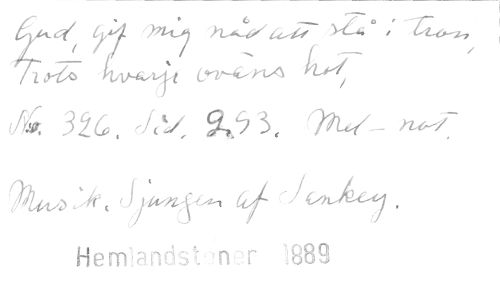 Gud, gif mig nåd att stå i tron,
Trots hvarje ovåns hot,
No. 326. Sid. 293. Mel-not.
Musik. Sjungen af Sankey.
Hemlandstoner 1889